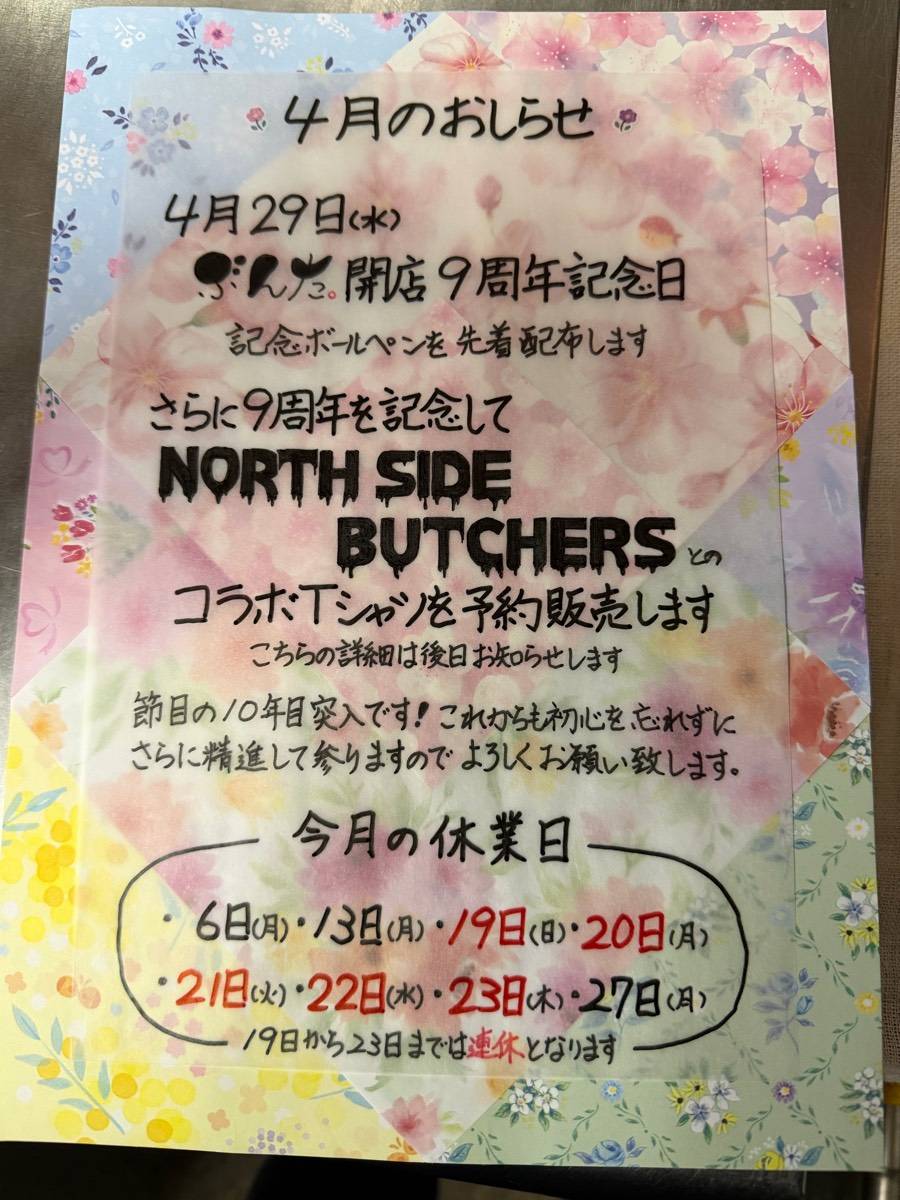 4月のおしらせ
4月29日(水)
ぶんた。開店9周年記念日
記念ボールペンを先着配布します
さらに9周年を記念して
NORTH SIDE
BUTCHERSとの
コラボTシャツを予約販売します
こちらの詳細は後日お知らせします
節目の10年目突入です!これからも初心を忘れずに
さらに精進して参りますのでよろしくお願い致します。
今月の休業日
・6日(月)・13日(月)・19日(日)・20日(月)
・21日(火)・22日(水)・23日(木)・27日(月)
19日から23日までは連休となります